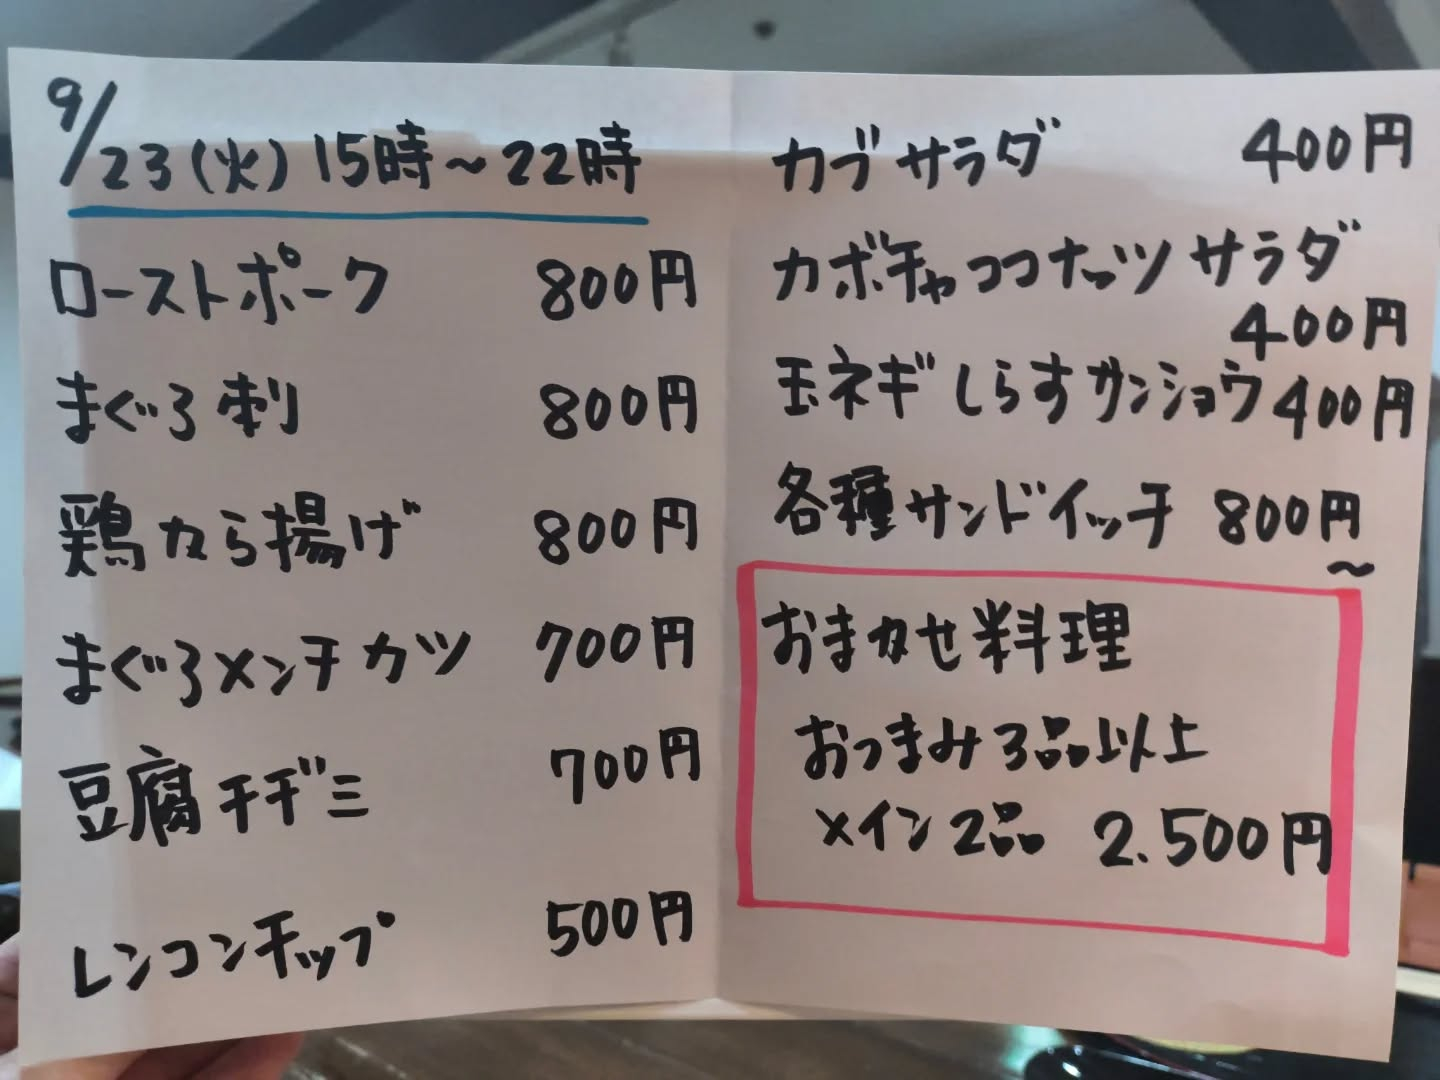 9/23(火)15時～22時
ローストポーク 800円
まぐろ刺 800円
鶏から揚げ 800円
まぐろメンチカツ 700円
豆腐チヂミ 700円
レンコンチップ 500円
カブサラダ 400円
カボチャココナッツサラダ
400円
玉ネギしらすサンショウ 400円
各種サンドイッチ 800円
～
おまかせ料理
おつまみ3品以上
メイン2品 2.500円